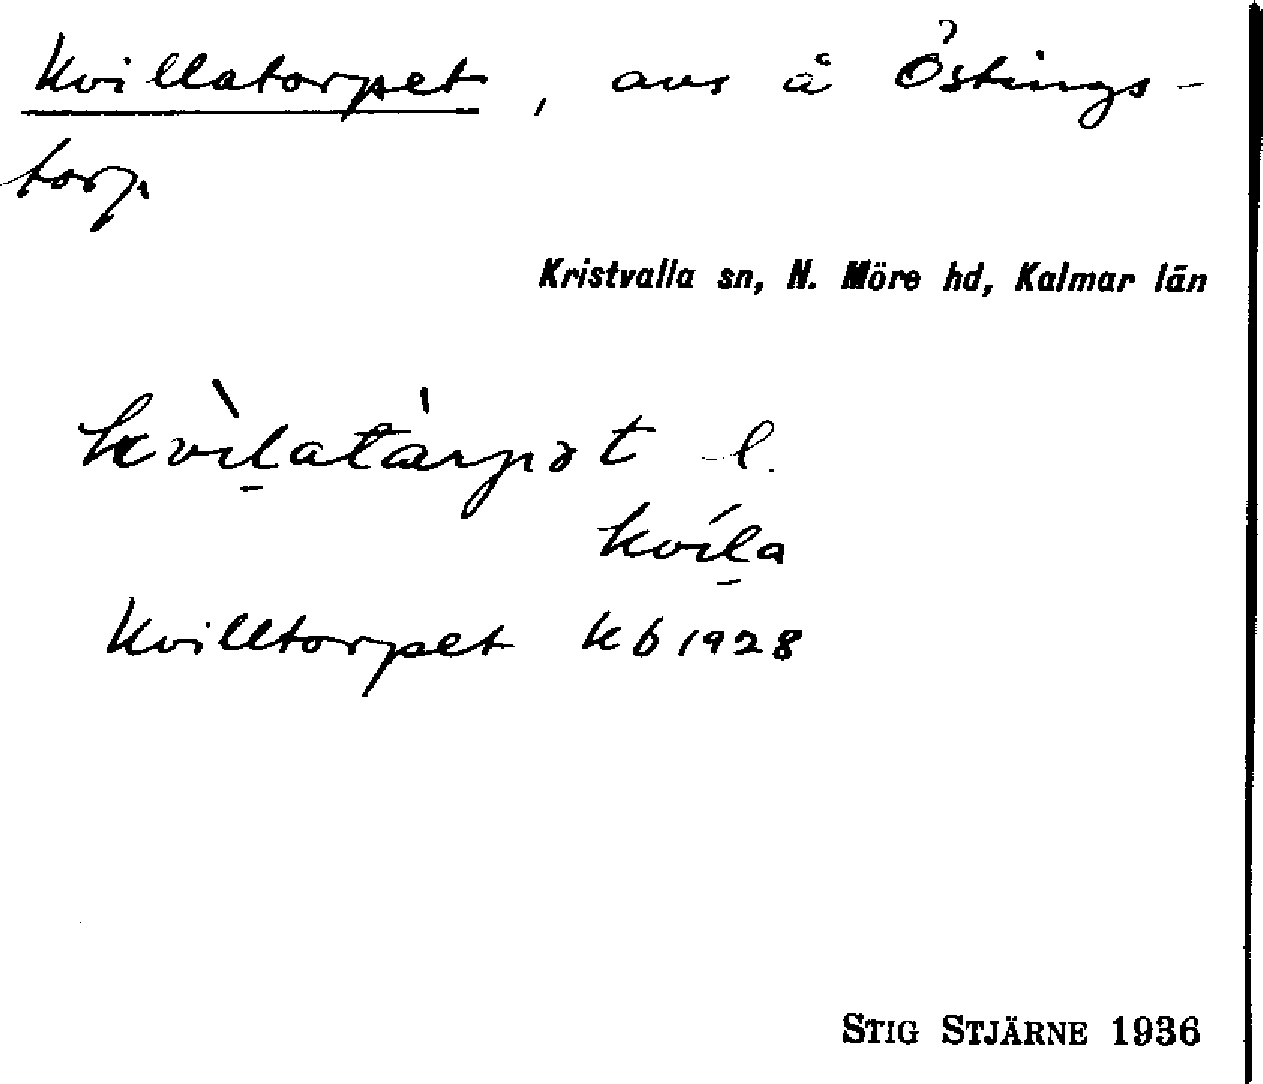 Kvillatorpet, avs å Östings-
torp.
Kristvalla sn, N. Möre hd, Kalmar län
kvìl̠atàrpət l.
kvíl̠a
Kvilltorpet Kb 1928
STIG STJÄRNE 1936